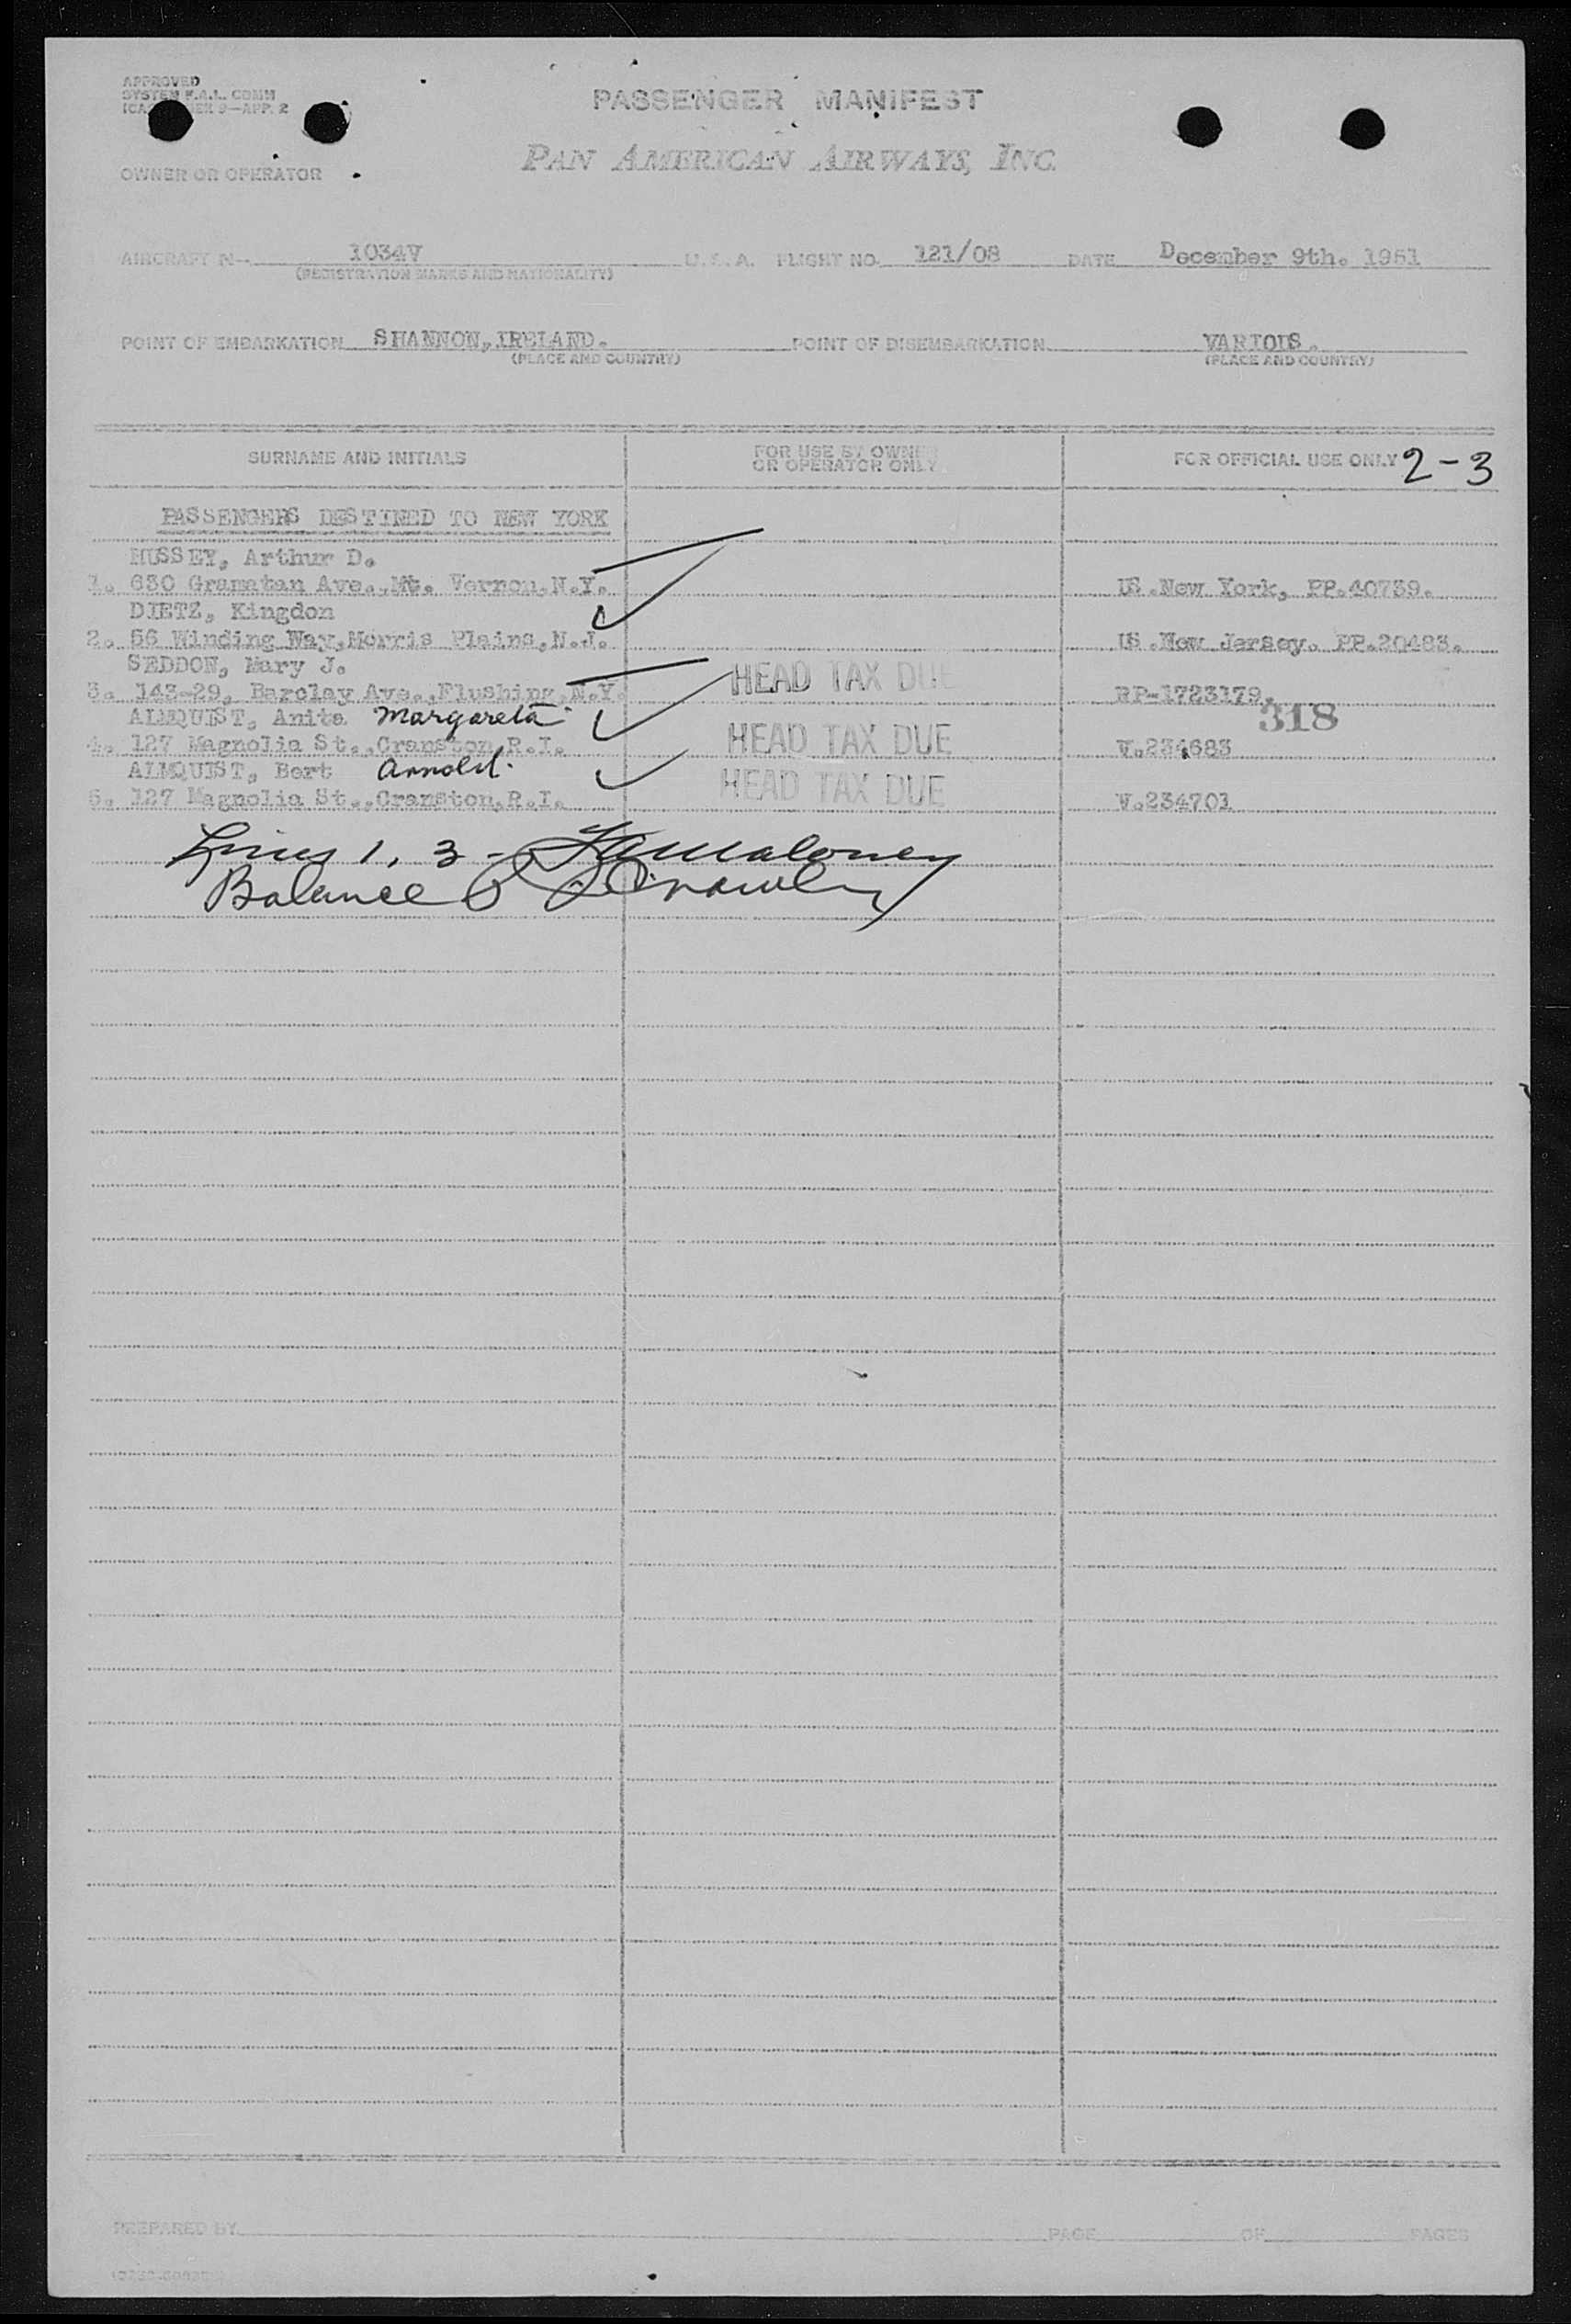 APPROVED
SYSTEM F.A.L. COMM
9—APP. 2
PASSENGER MANIFEST
PAN AMERICAN AIRWAYS, INC.
OWNER OR OPERATOR
AIRCRAFT N- 1034V U.S.A. FLIGHT NO. 121/08 DATE December 9th. 1951
(REGISTRATION MARKS AND NATIONALITY)
POINT OF EMBARKATION SHANNON, IRELAND. POINT OF DISEMBARKATION VARIOUS.
(PLACE AND COUNTRY) (PLACE AND COUNTRY)
SURNAME AND INITIALS FOR USE BY OWNER OR OPERATOR ONLY FOR OFFICIAL USE ONLY 2-3
PASSENGERS DESTINED TO NEW YORK
HUSSEY, Arthur D.
1. 630 Gramatan Ave., Mt. Vernon, N.Y. US. New York, PP. 40739.
DIETZ, Kingdon
2. 56 Winding Way, Morris Plains, N.J. US. New Jersey. PP. 20483.
SEDDON, Mary J.
3. 143-29, Barclay Ave., Flushing, N.Y. HEAD TAX DUE RP-1723179.
ALMQUIST, Anita Margareta 318
4. 127 Magnolia St., Cranston, R.I. HEAD TAX DUE V.234683
ALMQUIST, Bert Arnold.
5. 127 Magnolia St., Cranston, R.I. HEAD TAX DUE V.234701
Lines 1, 3 - Maloney
Balance
PREPARED BY PAGE OF PAGES